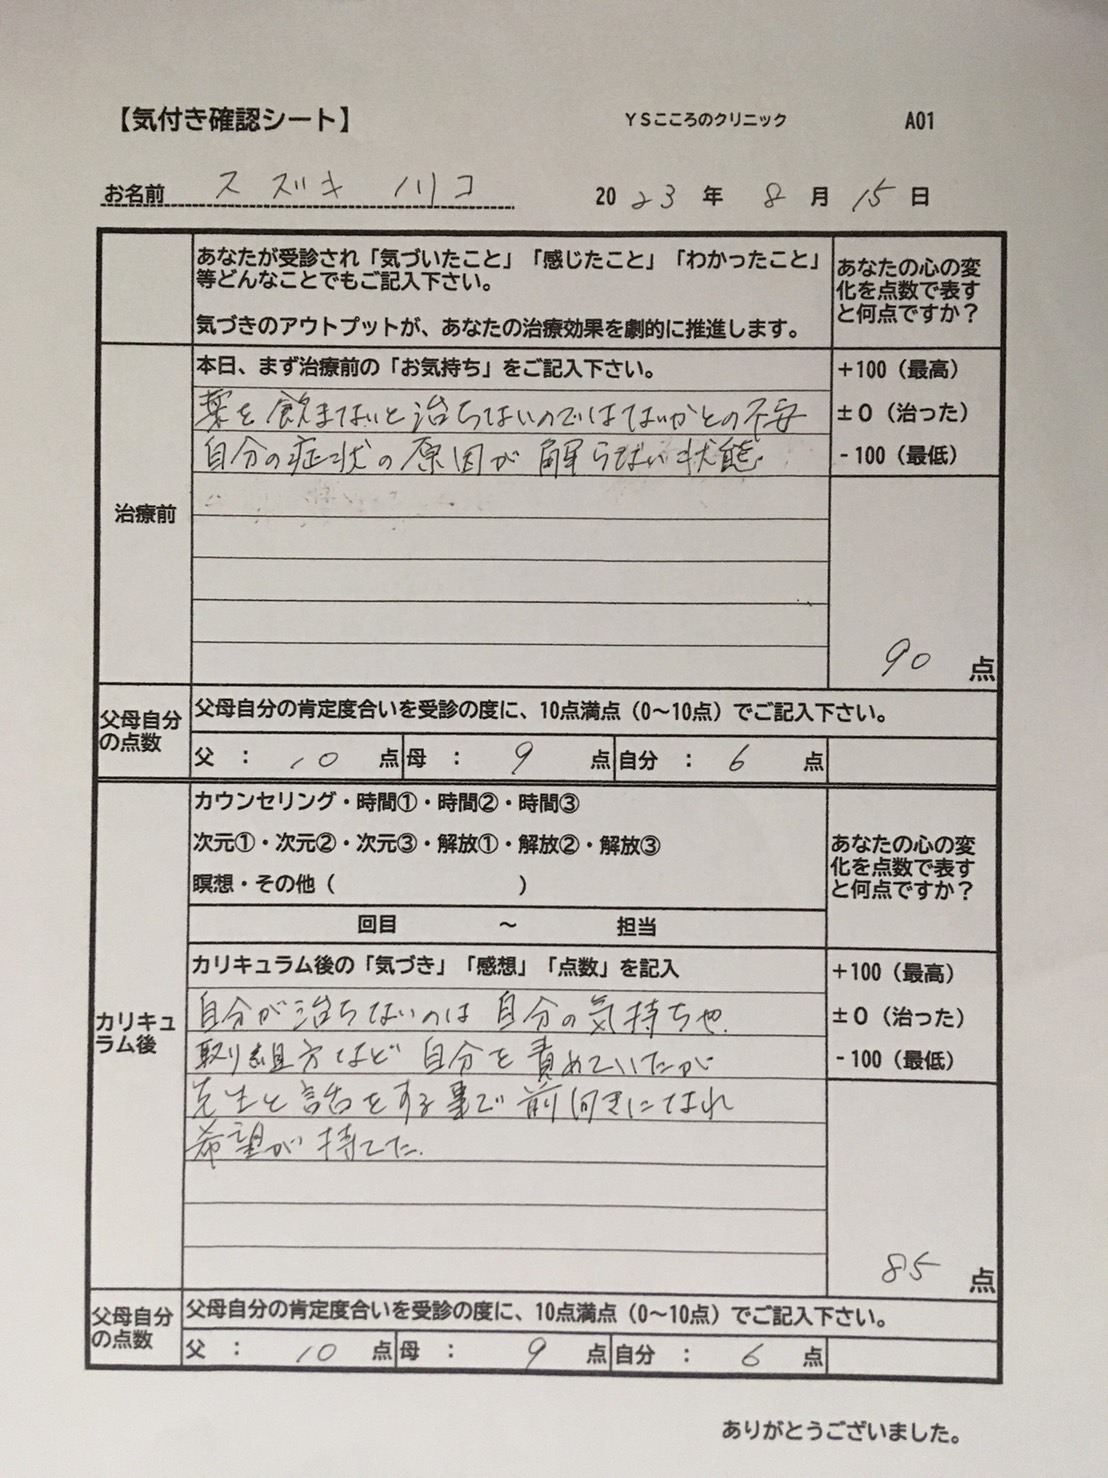 【気付き確認シート】 YSこころのクリニック A01
お名前 スズキ ノリコ 2023年 8月 15日
あなたが受診され「気づいたこと」「感じたこと」「わかったこと」
等どんなことでもご記入下さい。
気づきのアウトプットが、あなたの治療効果を劇的に推進します。
あなたの心の変
化を点数で表す
と何点ですか？
治療前
本日、まず治療前の「お気持ち」をご記入下さい。
薬を飲まないと治らないのではないかとの不安
自分の症状の原因が解らない状態.
+100（最高）
±0（治った）
-100（最低）
90 点
父母自分
の点数
父母自分の肯定度合いを受診の度に、10点満点（0～10点）でご記入下さい。
父 ： 10 点 母 ： 9 点 自分 ： 6 点
カリキュ
ラム後
カウンセリング・時間①・時間②・時間③
次元①・次元②・次元③・解放①・解放②・解放③
瞑想・その他（ ）
回目 ～ 担当
あなたの心の変
化を点数で表す
と何点ですか？
カリキュラム後の「気づき」「感想」「点数」を記入
自分が治らないのは 自分の気持ちや.
取り組方など 自分を責めていたが
先生と話をする事で前向きになれ
希望が持てた.
+100（最高）
±0（治った）
-100（最低）
85 点
父母自分
の点数
父母自分の肯定度合いを受診の度に、10点満点（0～10点）でご記入下さい。
父 ： 10 点 母 ： 9 点 自分 ： 6 点
ありがとうございました。